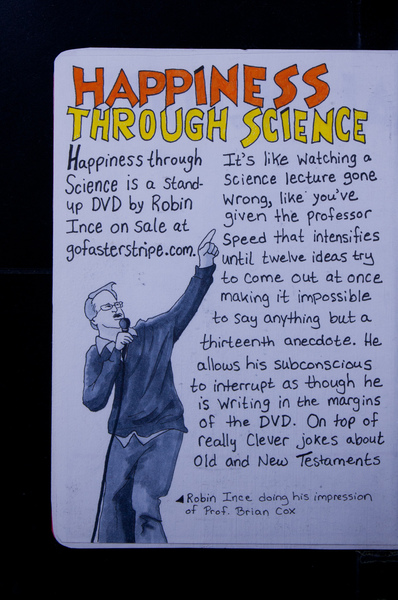 HAPPINESS
THROUGH SCIENCE
Happiness through
Science is a stand-
up DVD by Robin
Ince on sale at
gofasterstripe.com.
It's like watching a
science lecture gone
wrong, like you've
given the professor
speed that intensifies
until twelve ideas try
to come out at once
making it impossible
to say anything but a
thirteenth anecdote. He
allows his subconscious
to interrupt as though he
is writing in the margins
of the DVD. On top of
really clever jokes about
Old and New Testaments
Robin Ince doing his impression
of Prof. Brian Cox